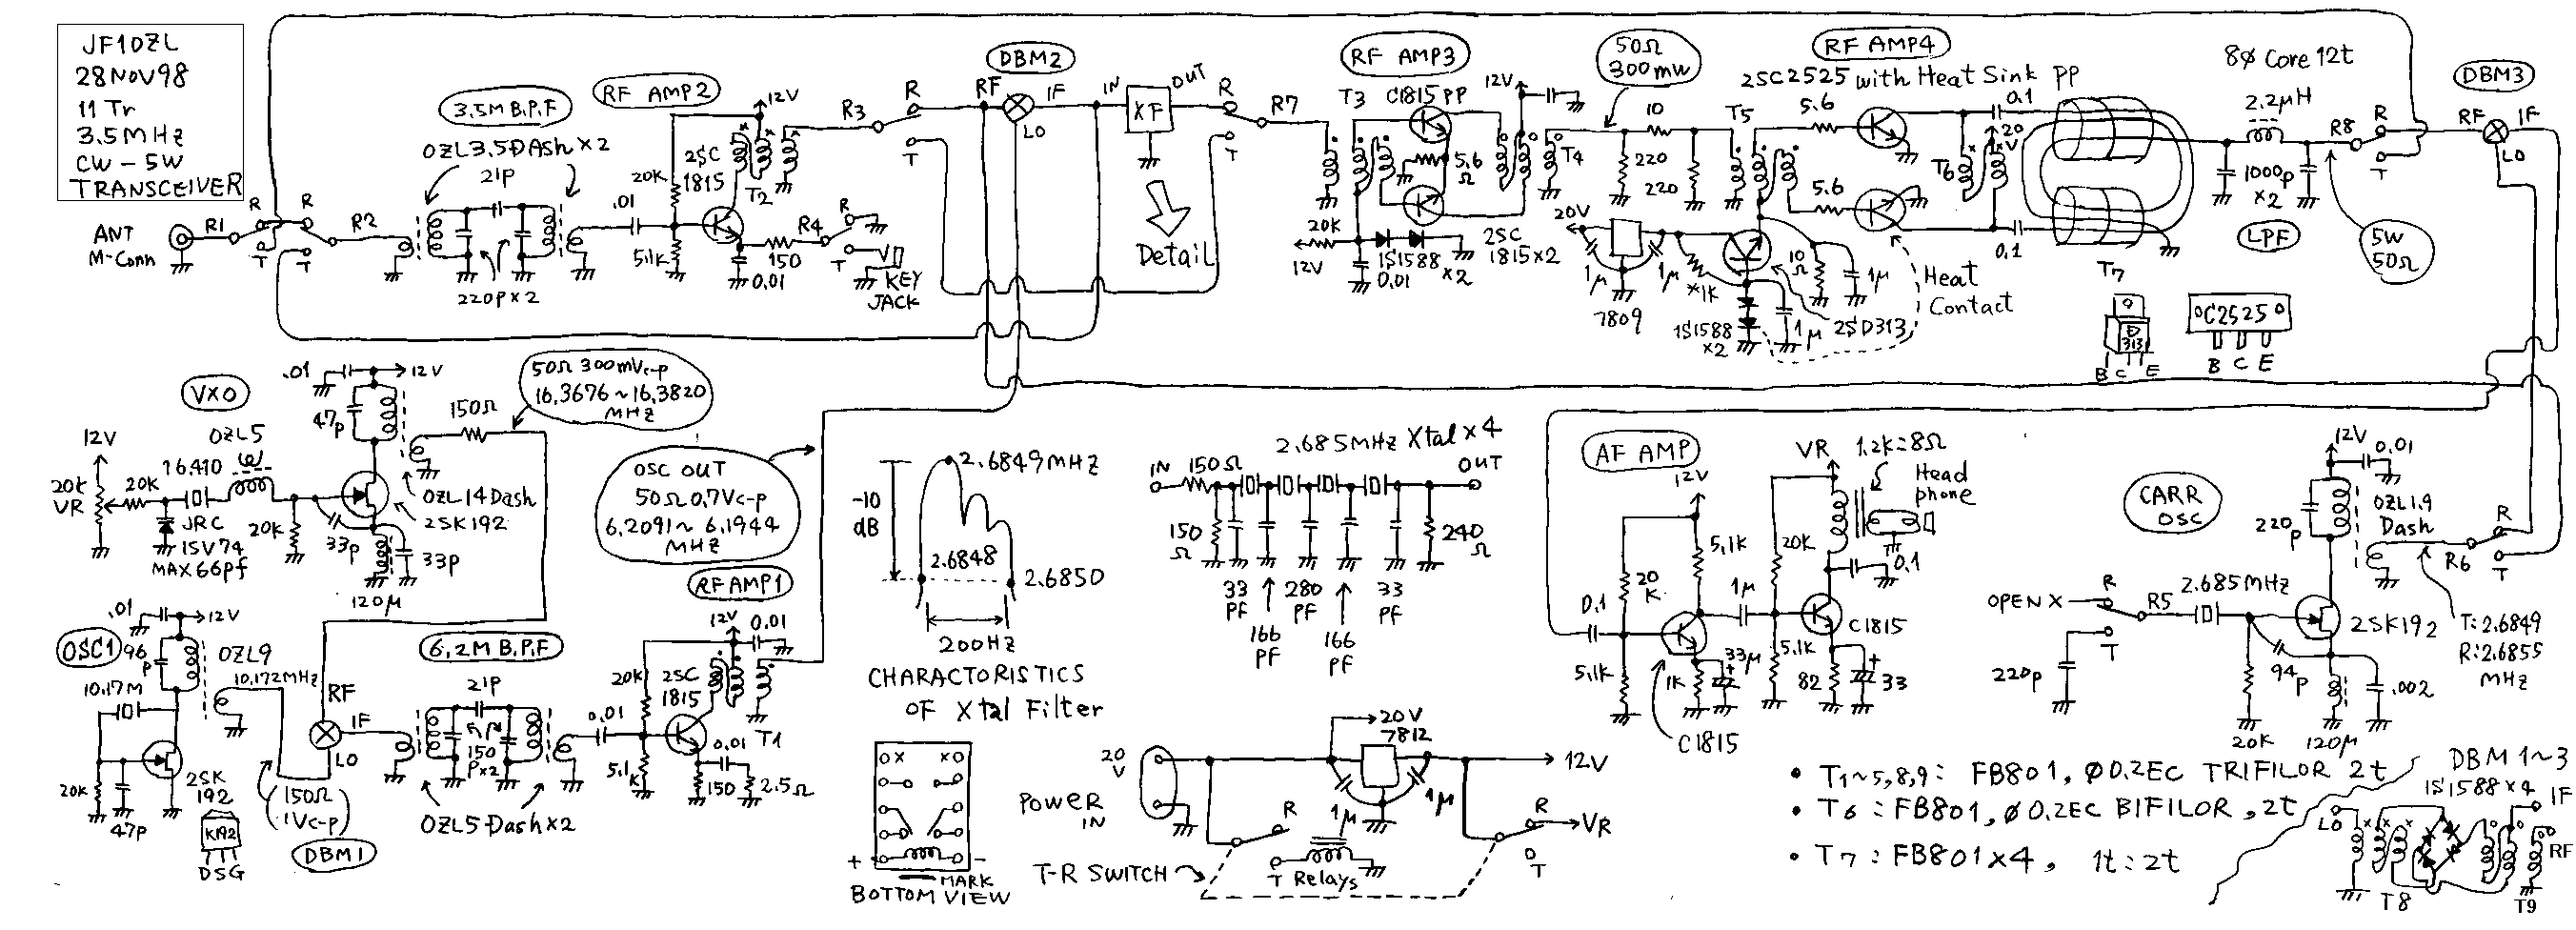 JF1OZL
28NOV98
11Tr
3.5MHz
CW-5W
TRANSCEIVER
ANT
M-Conn
R1
R
T
R
T
R2
3.5M B.P.F
OZL3.5DAsh×2
21P
220P×2
RF AMP2
12V
2SC
1815
20K
T2
.01
5.1K
0.01
150
R4
R
T
KEY
JACK
R3
R
T
DBM2
RF
IF
LO
IN
XF
OUT
Detail
R
T
R7
RF AMP3
T3
C1815PP
12V
5.6
Ω
T4
20K
12V
1S1588
×2
0.01
2SC
1815×2
50Ω
300mW
10
220
220
T5
RF AMP4
2SC2525 with Heat Sink PP
5.6
5.6
20V
1μ
1μ
7809
*1K
1S1588
×2
1μ
2SD313
10
Ω
1μ
Heat
Contact
T6
20
V
0.1
0.1
T7
8Φ Core 12t
2.2μH
1000P
×2
LPF
R8
R
T
5W
50Ω
D
313
B C E
°C2525°
B C E
DBM3
RF
IF
LO
VXO
12V
20K
VR
20K
16.410
OZL5
JRC
1SV74
MAX66pf
20K
33P
33P
120μ
.01
12V
47P
OZL14Dash
2SK192
150Ω
50Ω 300mVc-p
16.3676~16.3820
MHz
OSC OUT
50Ω0.7Vc-p
6.2091~6.1944
MHz
OSC1
.01
12V
96
P
OZL9
10.172MHz
10.17M
20K
47P
2SK
192
K192
DSG
(150Ω
1Vc-p)
DBM1
RF
IF
LO
6.2M B.P.F
21P
150
P×2
OZL5 Dash×2
0.01
5.1K
20K
2SC
1815
RFAMP1
12V
0.01
T1
0.01
150
2.5Ω
2.6849MHz
-10
dB
2.6848
2.6850
200Hz
CHARACTORISTICS
OF Xtal Filter
2.685MHz Xtal×4
IN
150Ω
OUT
150
Ω
240
Ω
33
PF
166
PF
280
PF
166
PF
33
PF
+
-
MARK
BOTTOM VIEW
20
V
POWER
IN
20V
7812
1μ
1μ
12V
R
T Relays
T-R SWITCH
R
T
VR
AF AMP
12V
0.1
20
K
5.1K
5.1K
1K
33μ
C1815
1μ
VR
20K
5.1K
82
33
C1815
1.2K=8Ω
Head
phone
0.1
CARR
OSC
12V
0.01
220
P
OZL1.9
Dash
R6
R
T
2.685MHz
OPEN X
R
T
R5
220P
20K
94
P
120μ
.002
2SK192
T:2.6849
R:2.6855
MHz
• T1~5,8,9: FB801, Φ0.2EC TRIFILOR 2t
• T6: FB801, Φ0.2EC BIFILOR, 2t
• T7: FB801×4, 1t:2t
DBM 1~3
1S1588×4
LO
IF
RF
T8
T9